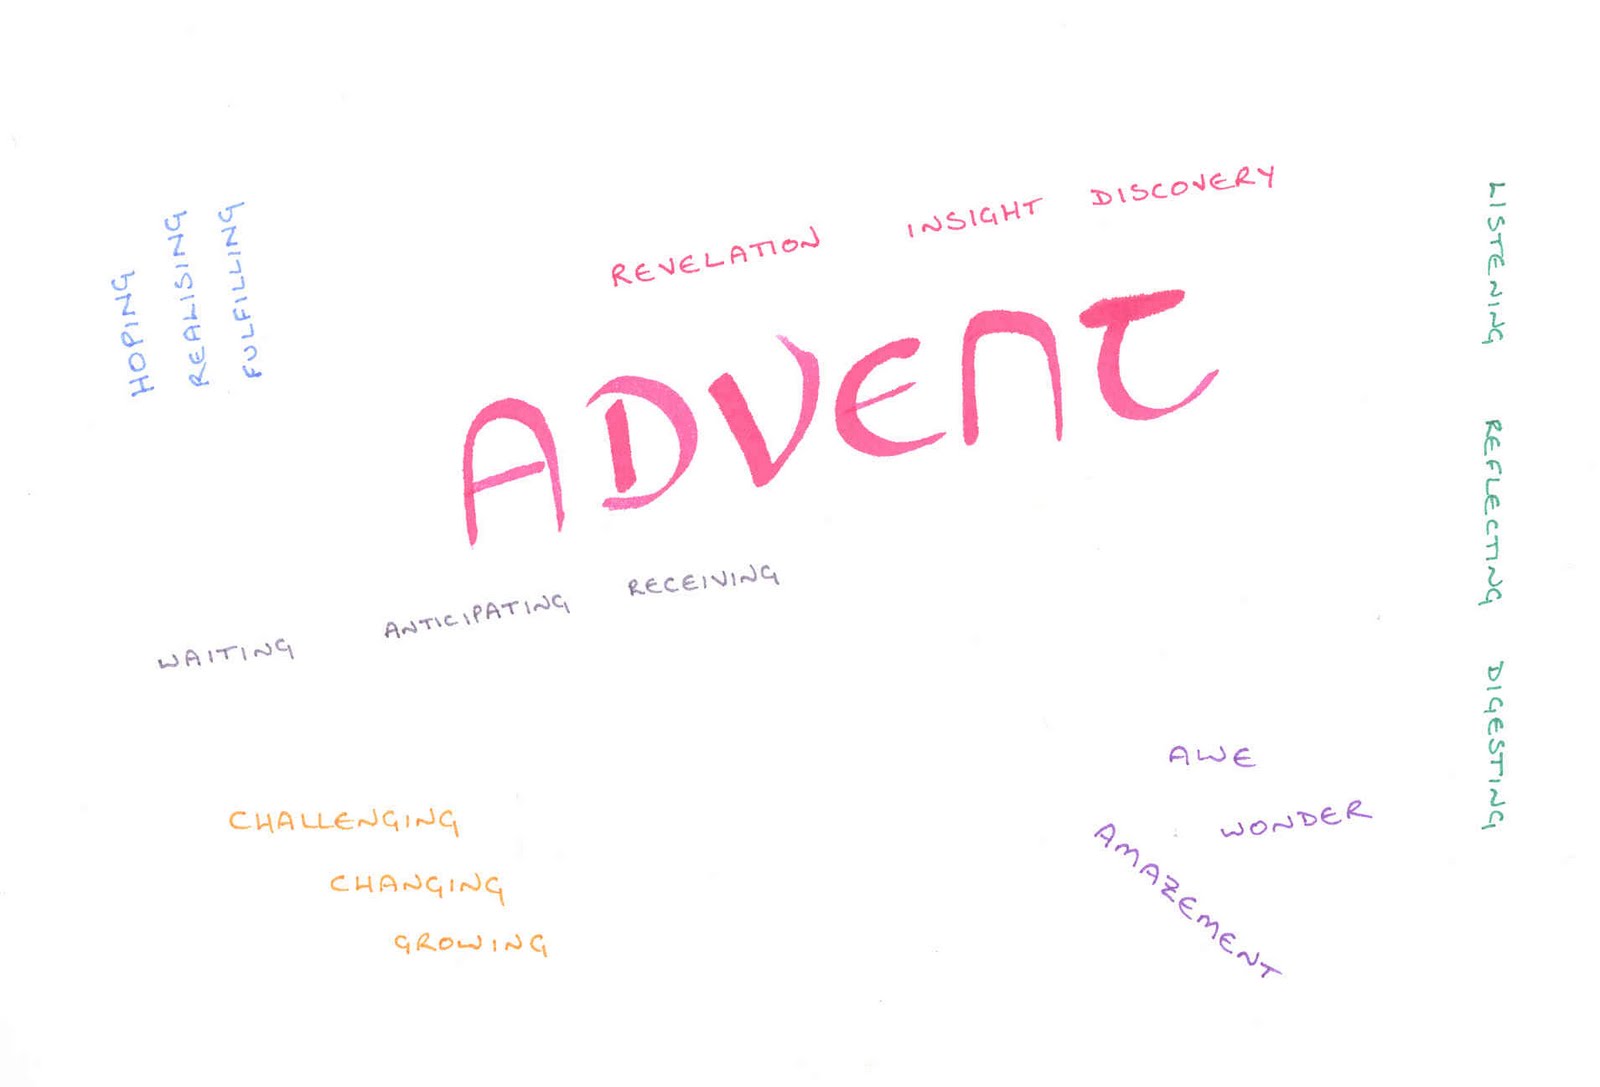 HOPING
REALISING
FULFILLING
REVELATION INSIGHT DISCOVERY
ADVENT
WAITING ANTICIPATING RECEIVING
LISTENING REFLECTING DIGESTING
CHALLENGING
CHANGING
GROWING
AWE
WONDER
AMAZEMENT